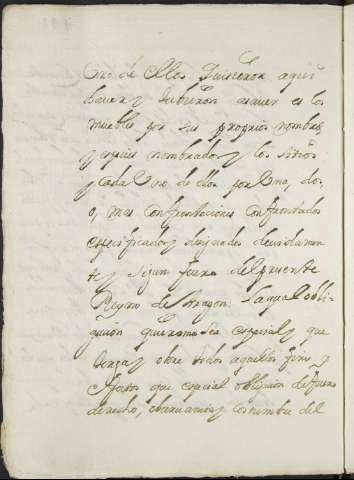 Uno de ellos quisieron aqui
haver y hubieron a saver es los
muebles por sus propios nombres
y especies nombrados y los sitios
y Cada Uno de ellos por Una, dos
o, mas confrontaciones confrontados
especificados y designados devidamen
te y segun fuero del presente
Reyno de Aragon. La qual obli-
gacion queremos sea especial y que
tenga y obre todos aquellos fines y
efectos que especial obligacion de fuero
derecho, observancia y costumbre del